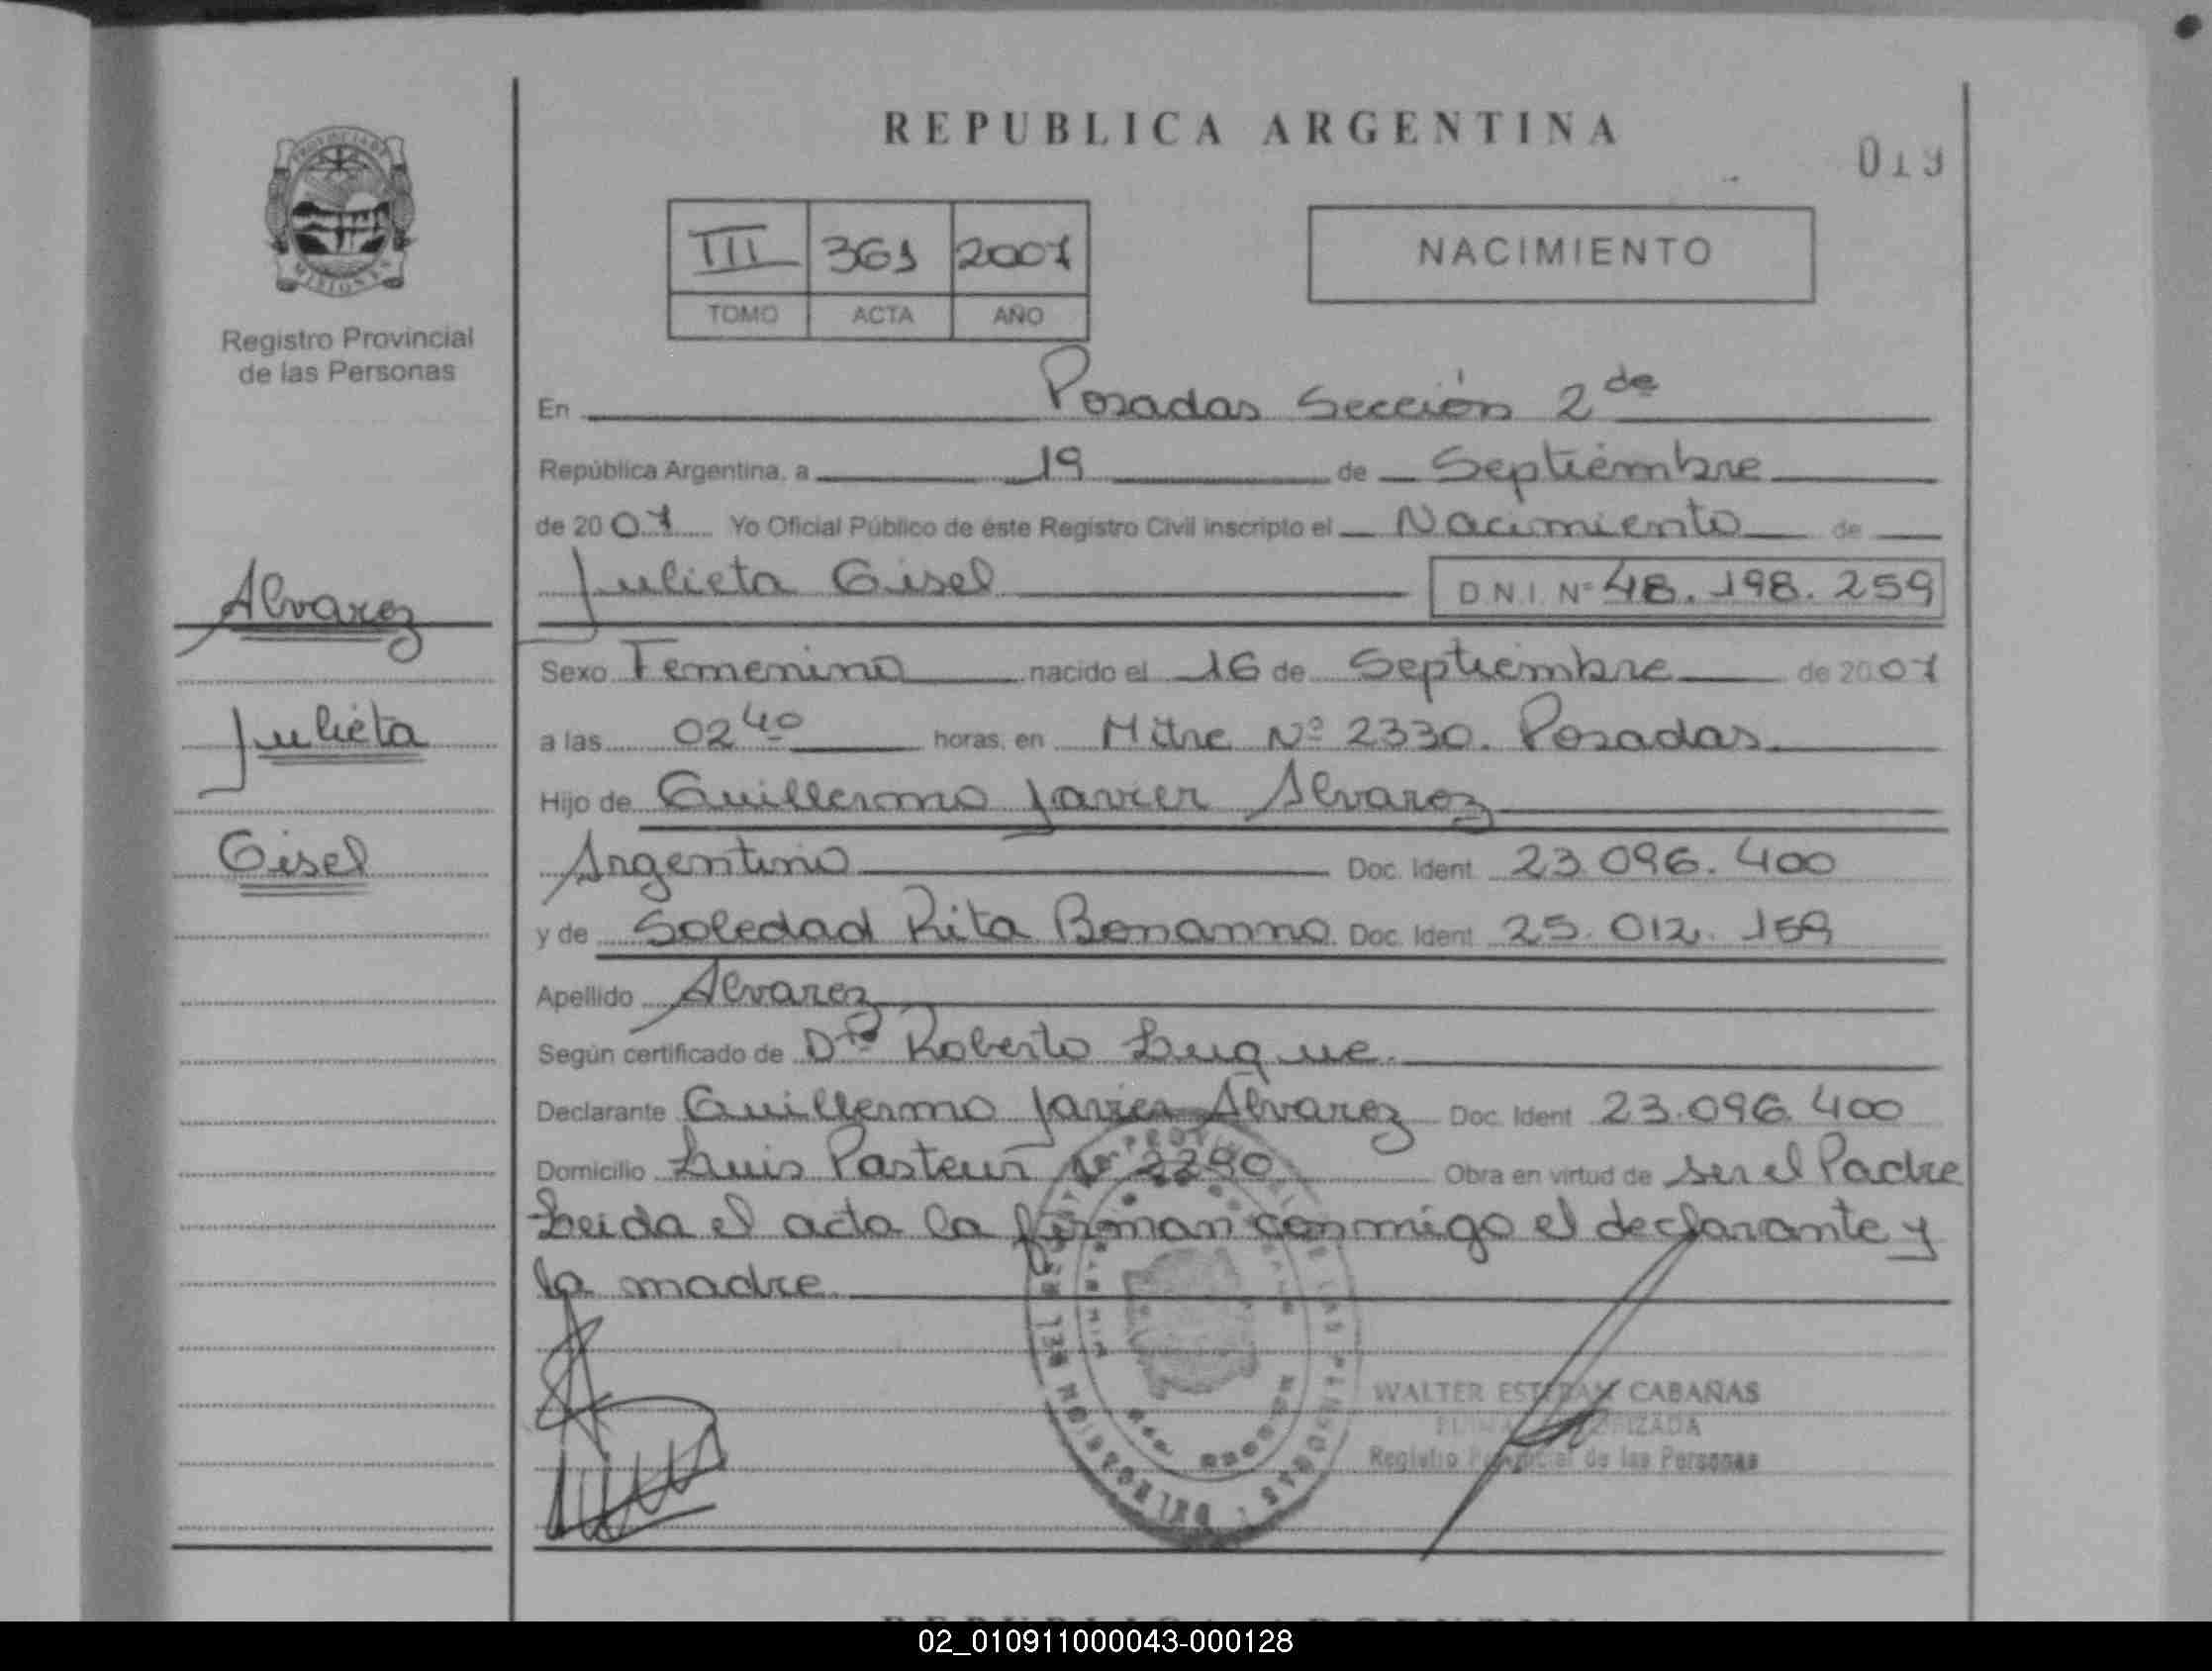 REPUBLICA ARGENTINA
019
PROVINCIA DE
MISIONES
Registro Provincial
de las Personas
III 361 2007
TOMO ACTA AÑO
NACIMIENTO
En Posadas Sección 2da
República Argentina, a 19 de Septiembre
de 2007 Yo Oficial Público de éste Registro Civil inscripto el Nacimiento de
Julieta Gisel D.N.I. Nº 48.198.259
Alvarez
Julieta
Gisel
Sexo Femenino nacido el 16 de Septiembre de 2007
a las 02 40 horas, en Mitre Nº 2330. Posadas
Hijo de Guillermo Javier Alvarez
Argentino Doc. Ident. 23.096.400
y de Soledad Rita Bonanno Doc. Ident. 25.012.159
Apellido Alvarez
Según certificado de Dr. Roberto Luque
Declarante Guillermo Javier Alvarez Doc. Ident. 23.096.400
Domicilio Luis Pasteur Nº 2290 Obra en virtud de ser el Padre
Leida el acta la firman conmigo el declarante y
la madre
WALTER ESTEBAN CABAÑAS
Registro Provincial de las Personas
02_010911000043-000128